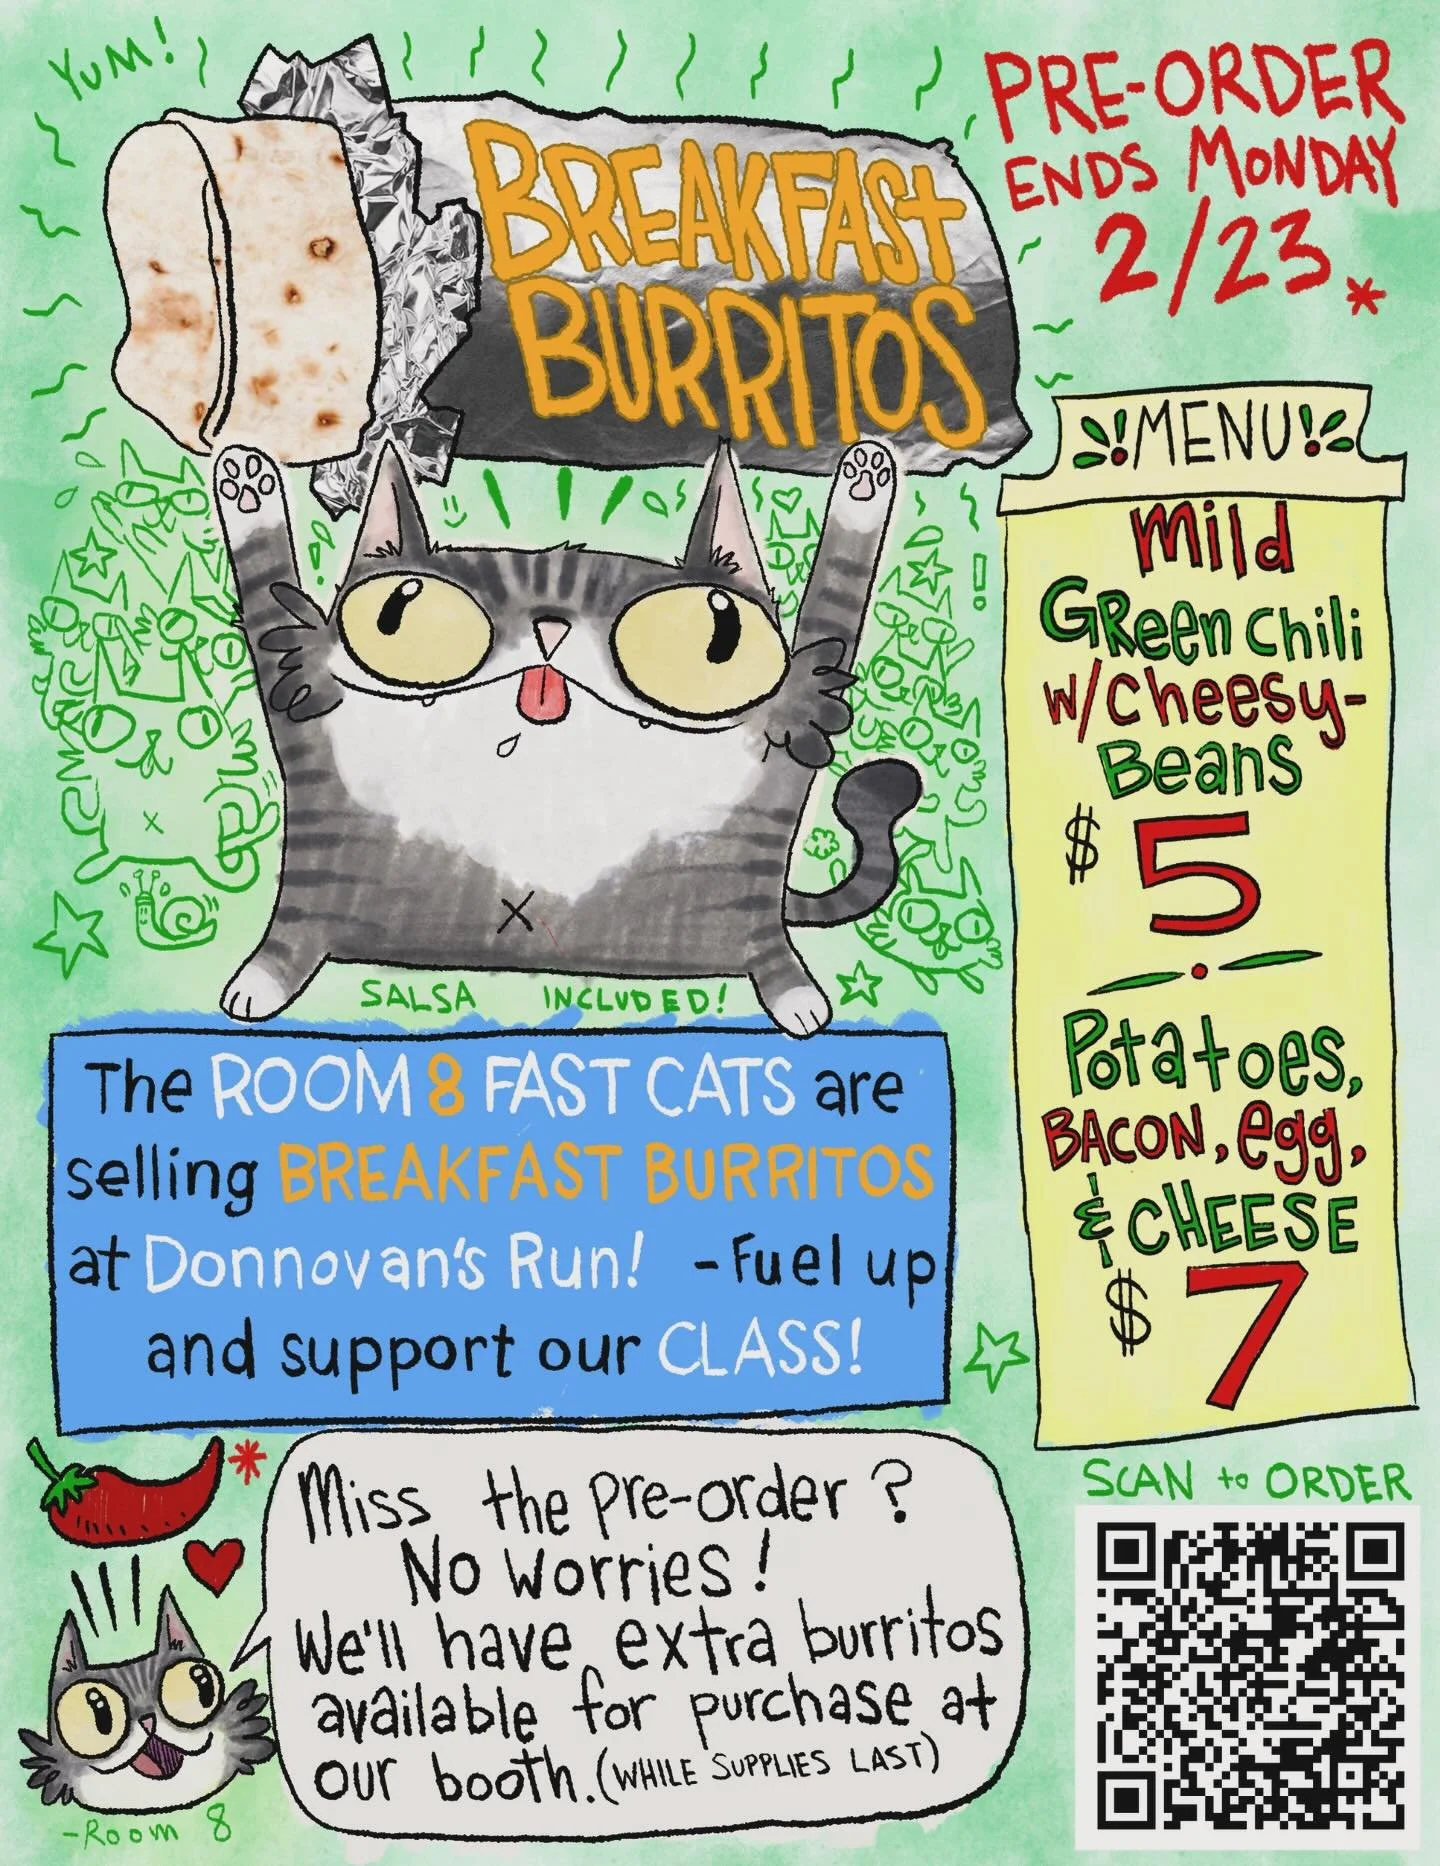 YUM!
BREAKFAST
BURRITOS
PRE-ORDER
ENDS MONDAY
2/23 *
!MENU!
Mild
GReen Chili
w/Cheesy-
Beans
$5
Potatoes,
BACON, egg,
& CHEESE
$7
SALSA INCLUDED!
The ROOM 8 FAST CATS are
selling BREAKFAST BURRITOS
at Donnovan's Run! - Fuel up
and support our CLASS!
*
Miss the pre-order?
No Worries!
We'll have extra burritos
available for purchase at
our booth. (WHILE SUPPLIES LAST)
-Room 8
SCAN to ORDER